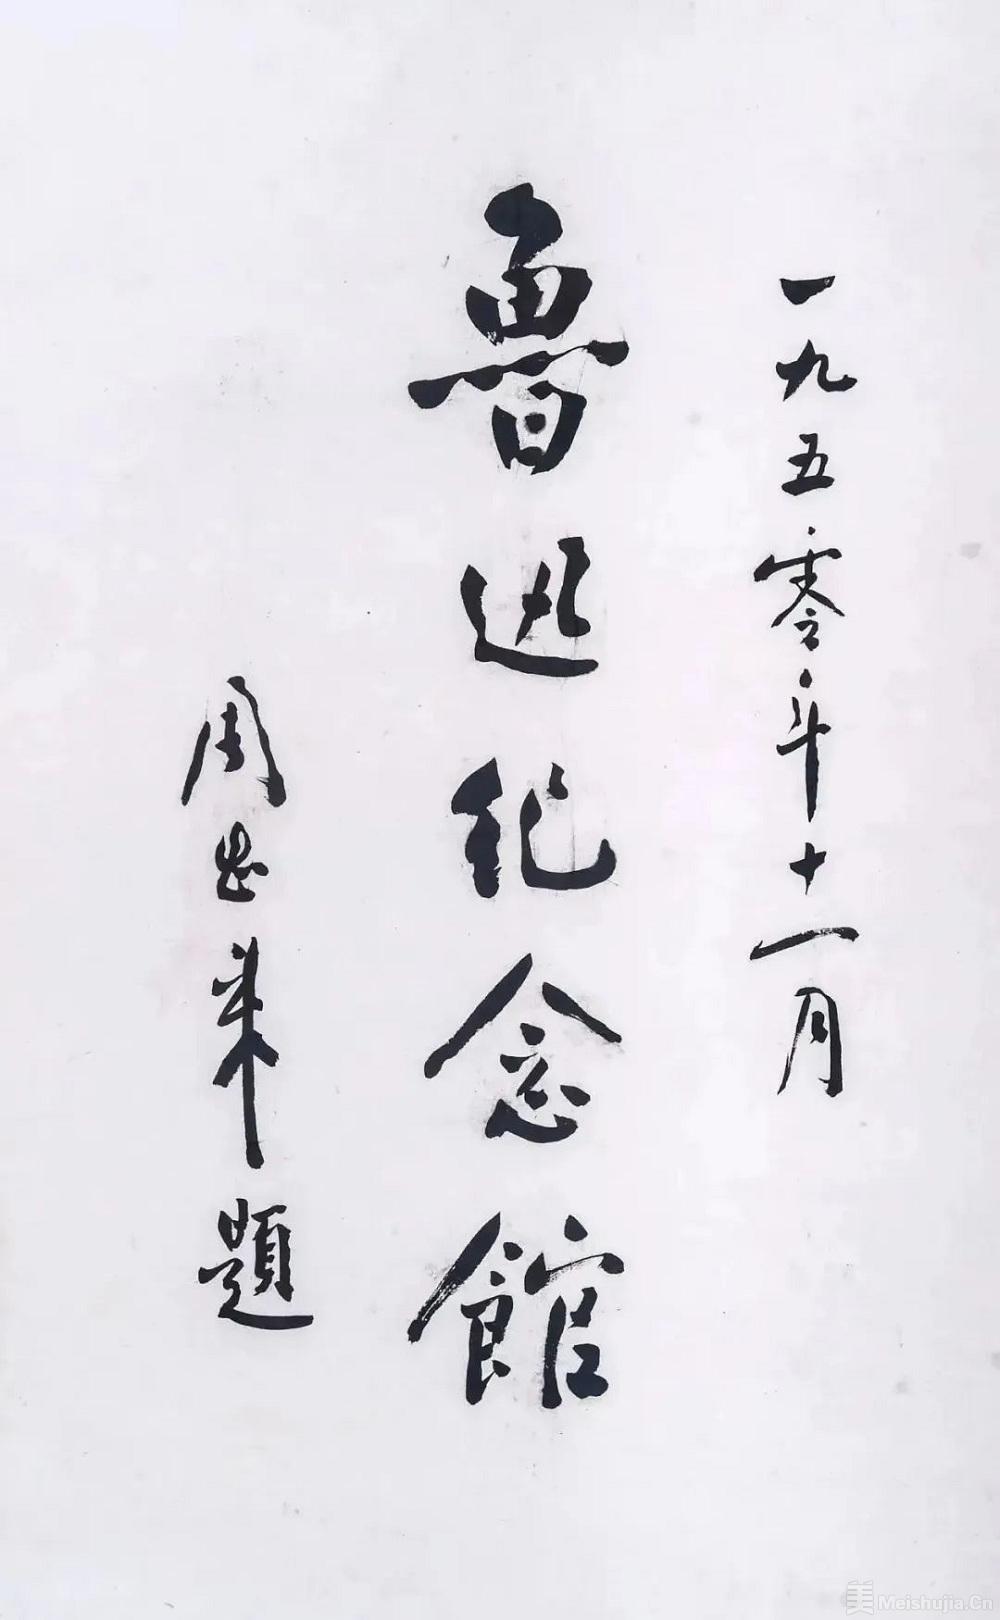 一九五零年十一月
魯迅纪念館
周恩来題
美 Meishujia.Cn